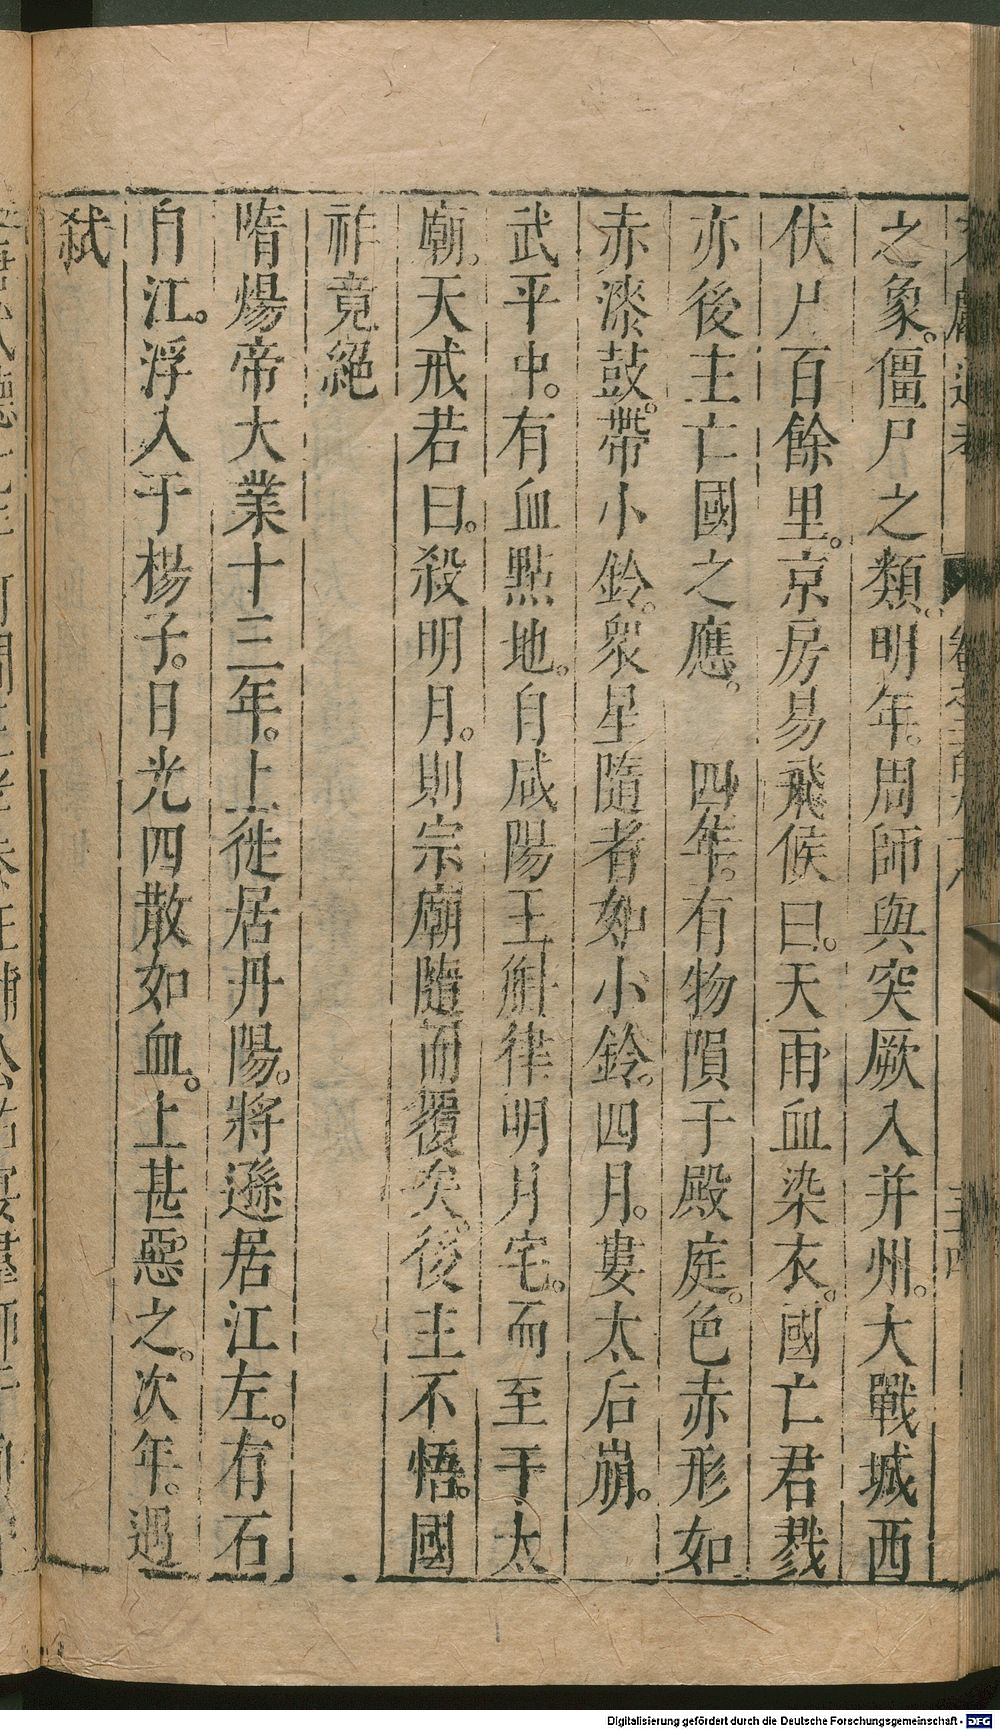 之象。僵尸之類。明年。周師與突厥入并州。大戰城西
伏尸百餘里。京房易飛候曰。天雨血染衣。國亡君戮
亦後主亡國之應。 四年。有物隕于殿庭。色赤形如
赤漆鼓。帶小鈴。衆星隨者如小鈴。四月。婁太后崩。
武平中。有血點地。自咸陽王斛律明月宅。而至于太
廟。天戒若曰。殺明月。則宗廟隨而覆矣。後主不悟。國
祚竟絕
隋煬帝大業十三年。上徙居丹陽。將遜居江左。有石
自江。浮入于楊子。日光四散如血。上甚惡之。次年。遇
弑
Digitalisierung gefördert durch die Deutsche Forschungsgemeinschaft - DFG